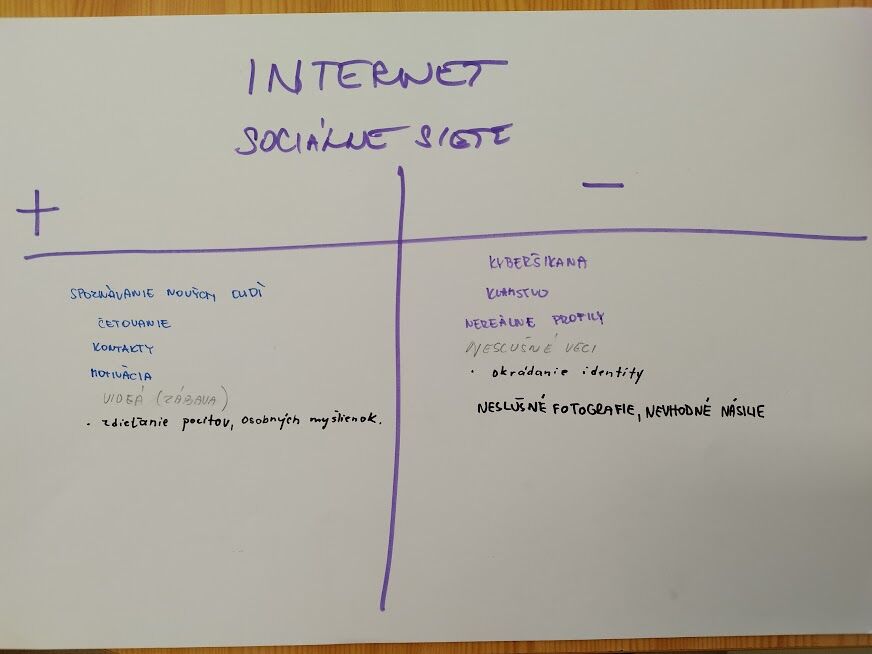 INTERNET
SOCIÁLNE SIETE
+
−
SPOZNÁVANIE NOVÝCH ĽUDÍ
ČETOVANIE
KONTAKTY
MOTIVÁCIA
VIDEÁ (ZÁBAVA)
· zdieľanie pocitov, osobných myšlienok.
KYBERŠIKANA
KLAMSTVO
NEREÁLNE PROFILY
NESLUŠNÉ VECI
· okrádanie identity
NESLUŠNÉ FOTOGRAFIE, NEVHODNÉ NÁSILIE